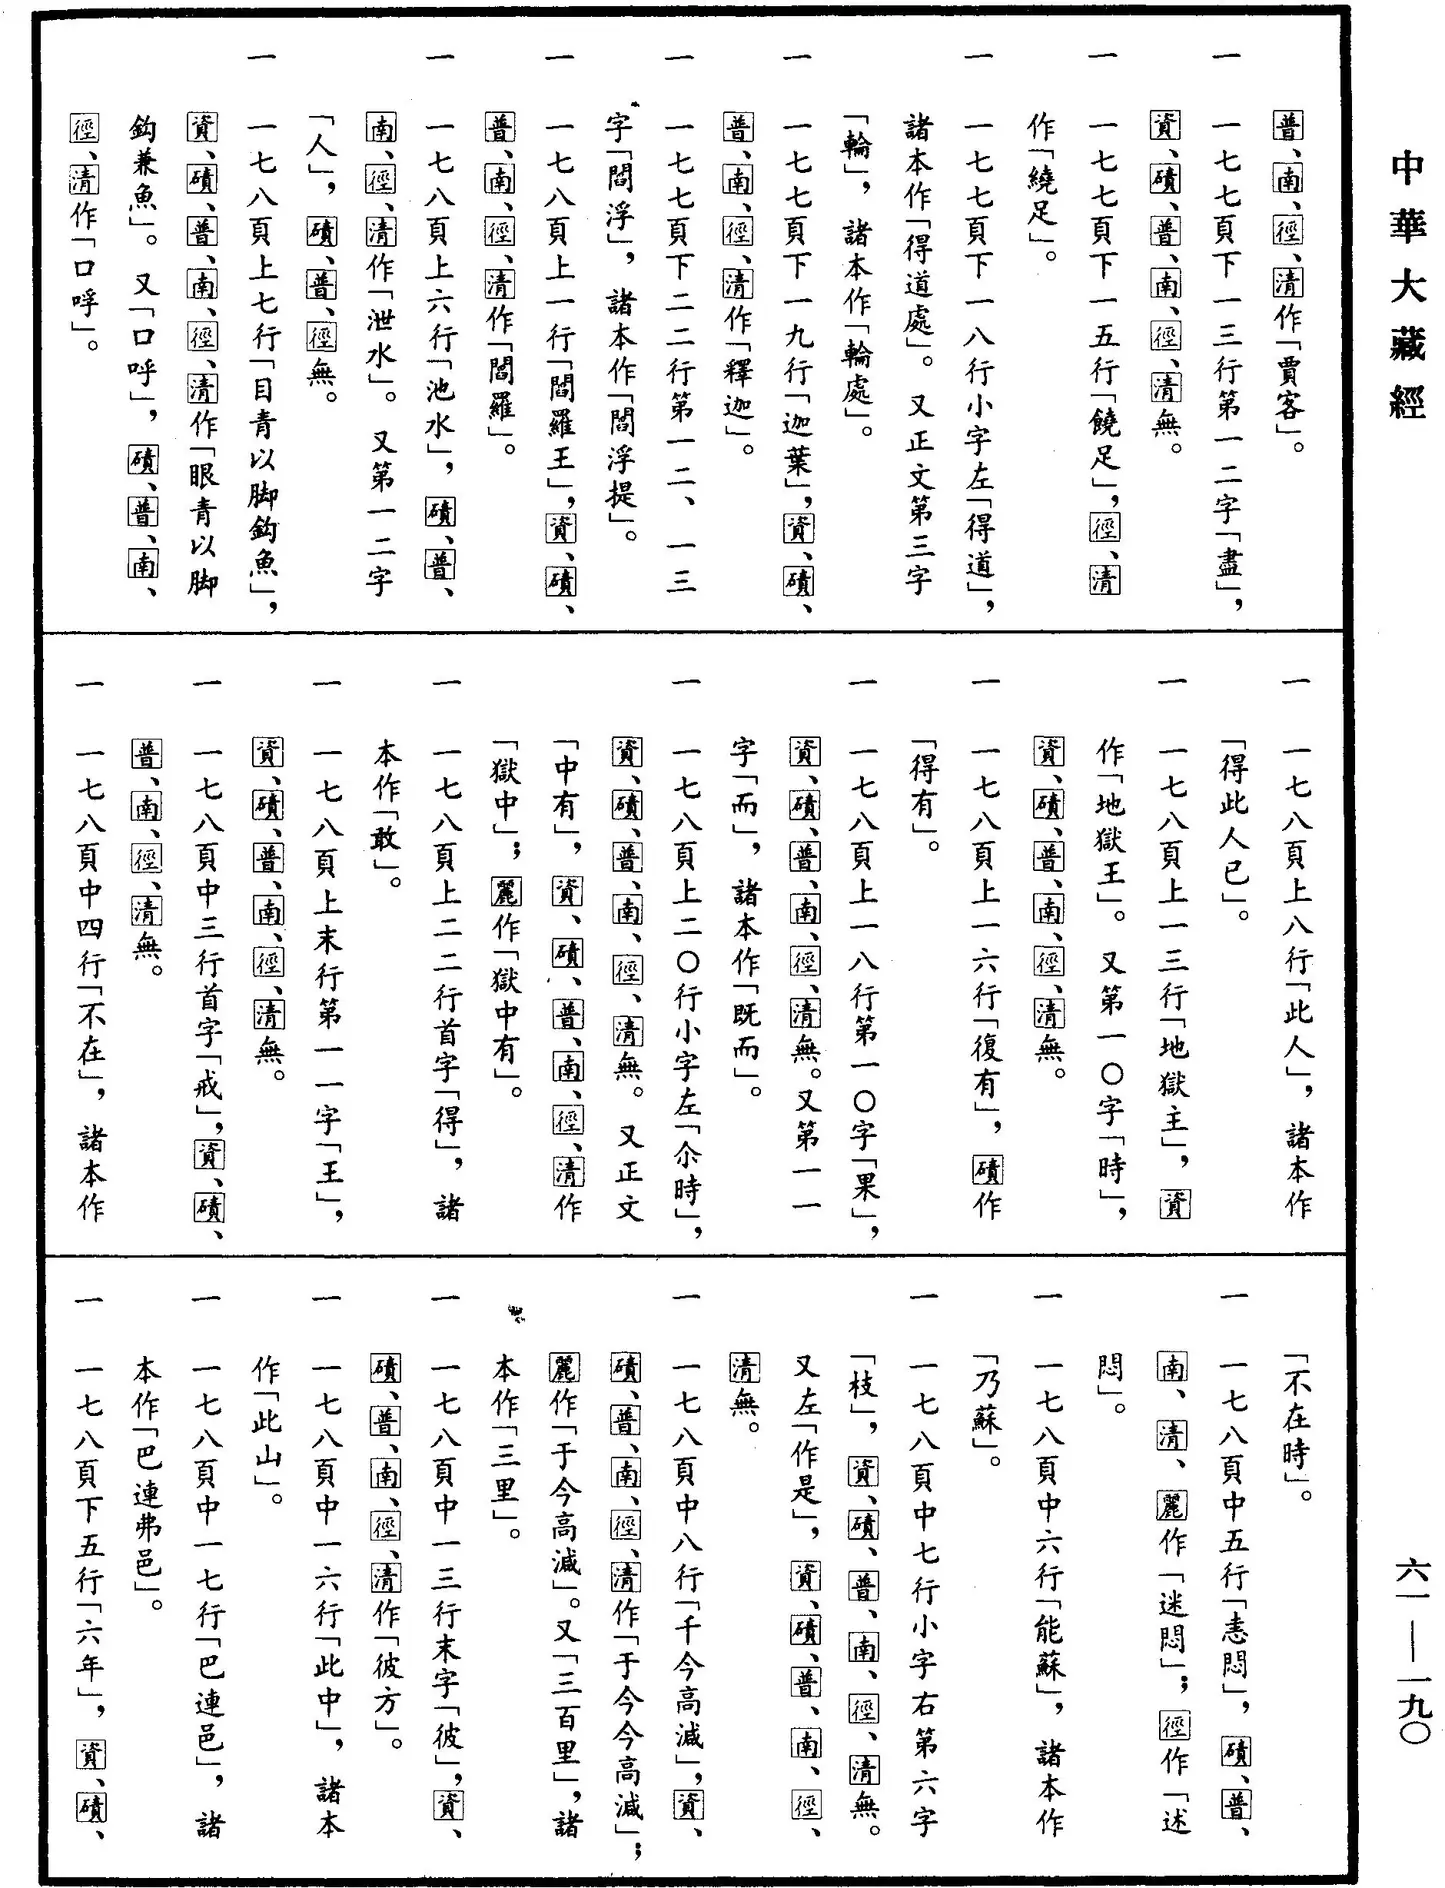 中華大藏經
普、南、徑、清作「賈客」。
一 一七七頁下一三行第一二字「盡」，
資、磧、普、南、徑、清無。
一 一七七頁下一五行「饒足」，徑、清
作「繞足」。
一 一七七頁下一八行小字左「得道」，
諸本作「得道處」。又正文第三字
「輪」，諸本作「輪處」。
一 一七七頁下一九行「迦葉」，資、磧、
普、南、徑、清作「釋迦」。
一 一七七頁下二二行第一二、一三
字「閻浮」，諸本作「閻浮提」。
一 一七八頁上一行「閻羅王」，資、磧、
普、南、徑、清作「閻羅」。
一 一七八頁上六行「池水」，磧、普、
南、徑、清作「泄水」。又第一二字
「人」，磧、普、徑無。
一 一七八頁上七行「目青以脚鈎魚」，
資、磧、普、南、徑、清作「眼青以脚
鈎兼魚」。又「口呼」，磧、普、南、
徑、清作「口哹」。
一 一七八頁上八行「此人」，諸本作
「得此人已」。
一 一七八頁上一三行「地獄主」，資
作「地獄王」。又第一〇字「時」，
資、磧、普、南、徑、清無。
一 一七八頁上一六行「復有」，磧作
「得有」。
一 一七八頁上一八行第一〇字「果」，
資、磧、普、南、徑、清無。又第一一
字「而」，諸本作「既而」。
一 一七八頁上二〇行小字左「尒時」，
資、磧、普、南、徑、清無。又正文
「中有」，資、磧、普、南、徑、清作
「獄中」；麗作「獄中有」。
一 一七八頁上二二行首字「得」，諸
本作「敢」。
一 一七八頁上末行第一一字「王」，
資、磧、普、南、徑、清無。
一 一七八頁中三行首字「戒」，資、磧、
普、南、徑、清無。
一 一七八頁中四行「不在」，諸本作
「不在時」。
一 一七八頁中五行「恚悶」，磧、普、
南、清、麗作「迷悶」；徑作「述
悶」。
一 一七八頁中六行「能蘇」，諸本作
「乃蘇」。
一 一七八頁中七行小字右第六字
「枝」，資、磧、普、南、徑、清無。
又左「作是」，資、磧、普、南、徑、
清無。
一 一七八頁中八行「千今高減」，資、
磧、普、南、徑、清作「于今今高減」；
麗作「于今高減」。又「三百里」，諸
本作「三里」。
一 一七八頁中一三行末字「彼」，資、
磧、普、南、徑、清作「彼方」。
一 一七八頁中一六行「此中」，諸本
作「此山」。
一 一七八頁中一七行「巴連邑」，諸
本作「巴連弗邑」。
一 一七八頁下五行「六年」，資、磧、
六一——一九〇